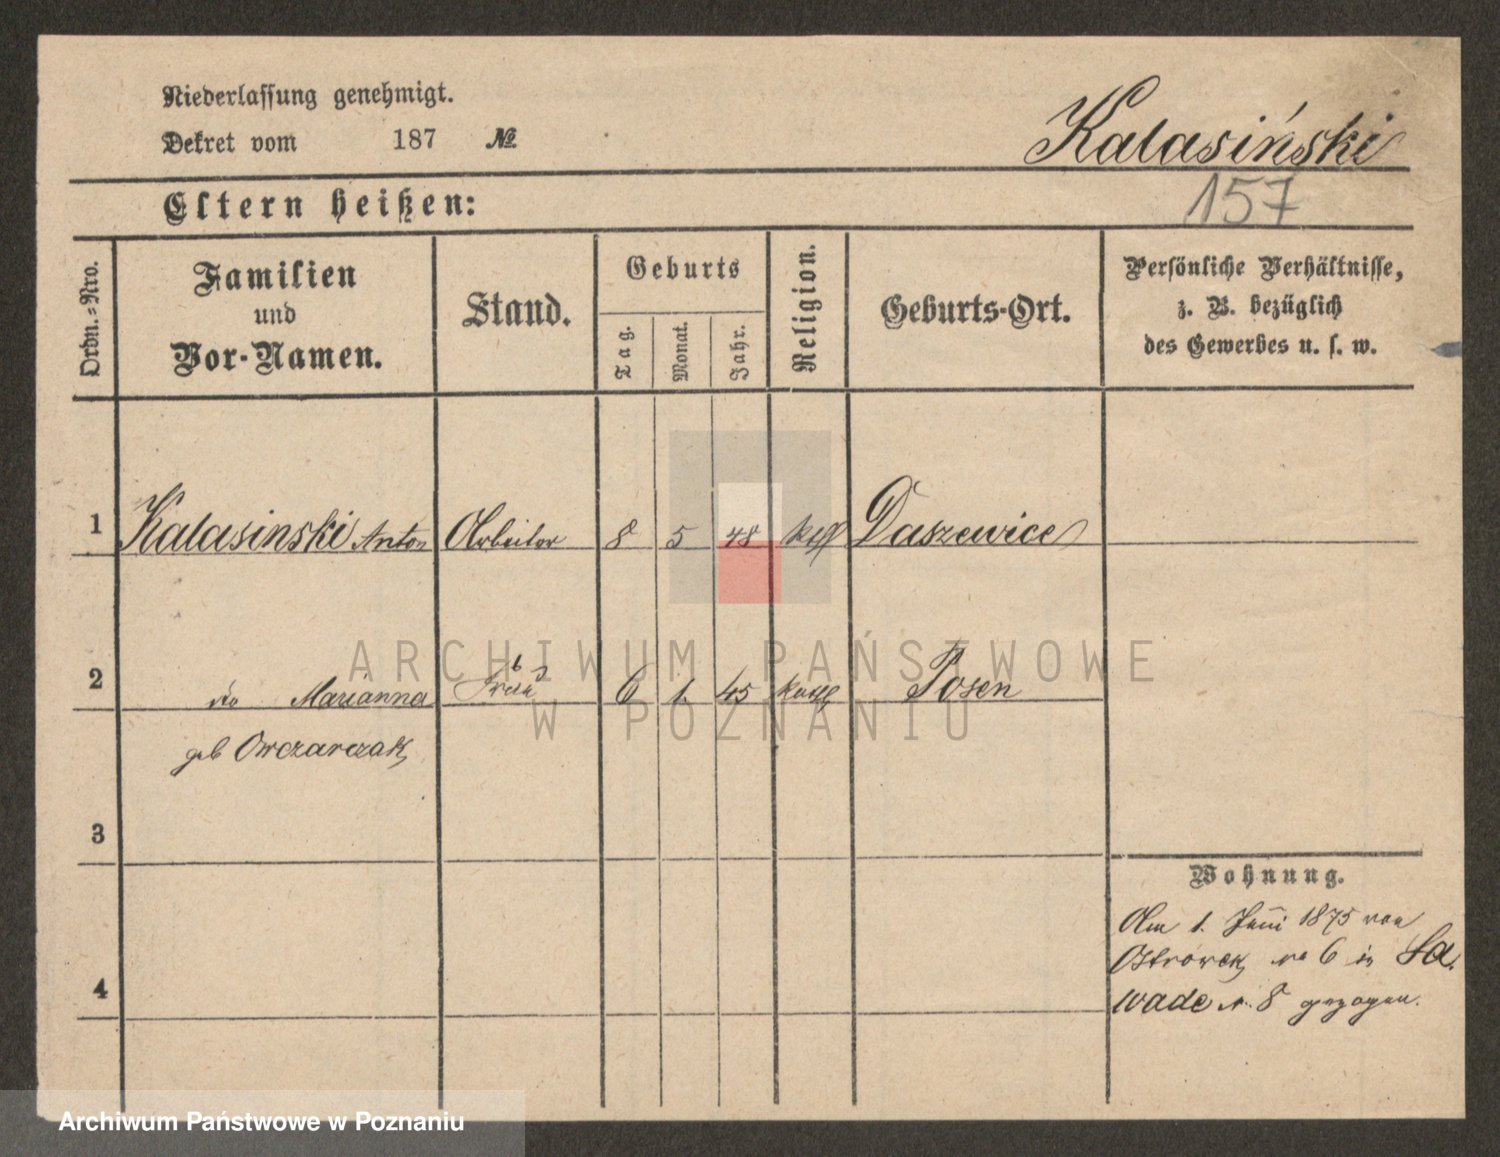 Niederlassung genehmigt.
Dekret vom 187 №
Kalasiński
157
Eltern heißen:
Ordn.-Nro.
Familien
und
Vor-Namen.
Stand.
Geburts
Tag.
Monat.
Jahr.
Religion.
Geburts-Ort.
Persönliche Verhältnisse,
z. B. bezüglich
des Gewerbes u. s. w.
1 Kalasinski Anton Arbeiter 8 5 48 kath Daszewice
2 do Marianna Frau 6 1. 45 kath Posen
geb Owczarczak
3
4
Wohnung.
Am 1. Juni 1875 von
Ostrówek no 6 in Sa
wade N. 8 gezogen.
ARCHIWUM PAŃSTWOWE
W POZNANIU
Archiwum Państwowe w Poznaniu